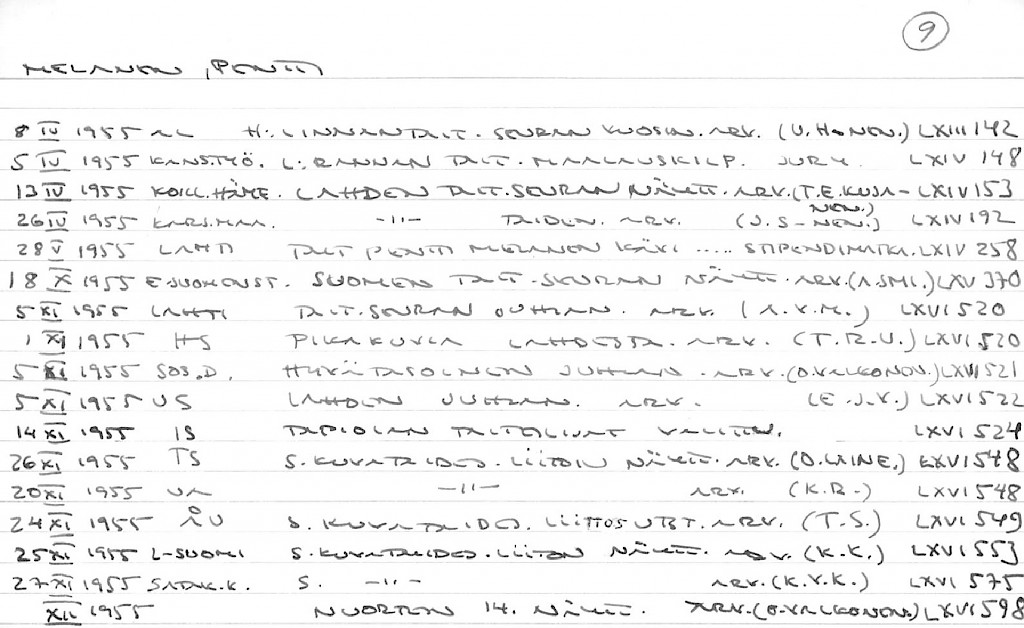 9
MELANEN, PENTTI
8 IV 1955 AL H:LINNAN TAIT.SEURAN VUOSIN. ARV. (U.H-NEN.) LXIII 142
5 IV 1955 KANSTYÖ. L:RANNAN TAIT. MAALAUSKILP. JURY. LXIV 148
13 IV 1955 KOILL.HÄME. LAHDEN TAIT.SEURAN NÄYTT. ARV. (T.E.KUJA-NEN.) LXIV 153
26 IV 1955 KARJ.MAA. -"- TAIDEN. ARV. (J.S-NEN.) LXIV 192
28 V 1955 LAHTI TAIT PENTTI MELANEN KÄVI ..... STIPENDIMATKA. LXIV 258
18 X 1955 E-SUOMI SUOMEN TAIT.SEURAN NÄYTT. ARV. (A.SMI.) LXV 370
5 XI 1955 LAHTI TAIT.SEURAN JUHLAN. ARV. (A.V.M.) LXVI 520
1 XI 1955 HS PIKAKUVIA LAHDESTA. ARV. (T.R-U.) LXVI 520
5 XI 1955 SOS.D. HYVÄTASOINEN JUHLAN. ARV. (O.VALKONEN.) LXVI 521
5 XI 1955 US LAHDEN JUHLAN. ARV. (E.J.V.) LXVI 522
14 XI 1955 IS TAPIOLAN TAITEILIJAT VALITTIIN. LXVI 524
26 XI 1955 TS S.KUVATAIDEJ.LIITON NÄYTT. ARV. (O.LAINE.) LXVI 548
20 XI 1955 UA -"- ARV. (K.R-) LXVI 548
24 XI 1955 ÅU S. KUVATAIDEJ. LIITTOS UTST. ARV. (T.S.) LXVI 549
25 XI 1955 L-SUOMI S.KUVATAIDEJ.LIITON NÄYTT. ARV. (K.K.) LXVI 553
27 XI 1955 SATAK.K. S. -"- ARV. (K.V.K.) LXVI 575
XII 1955 NUORTEN 14. NÄYTT. ARV. (O.VALKONEN.) LXVI 598